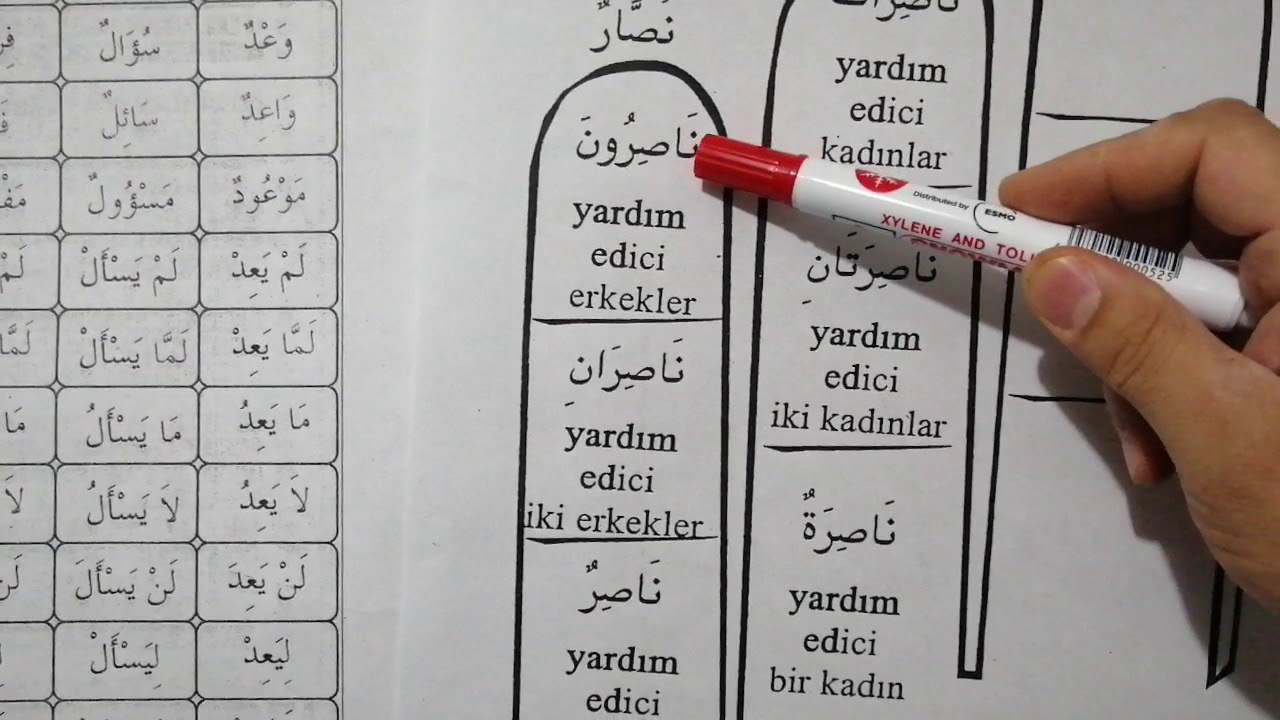 وَعْدٌ سُؤَالٌ
وَاعِدٌ سَائِلٌ
مَوْعُودٌ مَسْؤُولٌ
لَمْ يَعِدْ لَمْ يَسْأَلْ
لَمَّا يَعِدْ لَمَّا يَسْأَلْ
مَا يَعِدُ مَا يَسْأَلُ
لَا يَعِدُ لَا يَسْأَلُ
لَنْ يَعِدَ لَنْ يَسْأَلَ
لِيَعِدْ لِيَسْأَلْ
نَصَّارٌ
نَاصِرُونَ
yardım
edici
erkekler
نَاصِرَانِ
yardım
edici
iki erkekler
نَاصِرٌ
yardım
edici
نَاصِرَاتٌ
yardım
edici
kadınlar
نَاصِرَتَانِ
yardım
edici
iki kadınlar
نَاصِرَةٌ
yardım
edici
bir kadın
Distributed by ESMO
XYLENE AND
000525